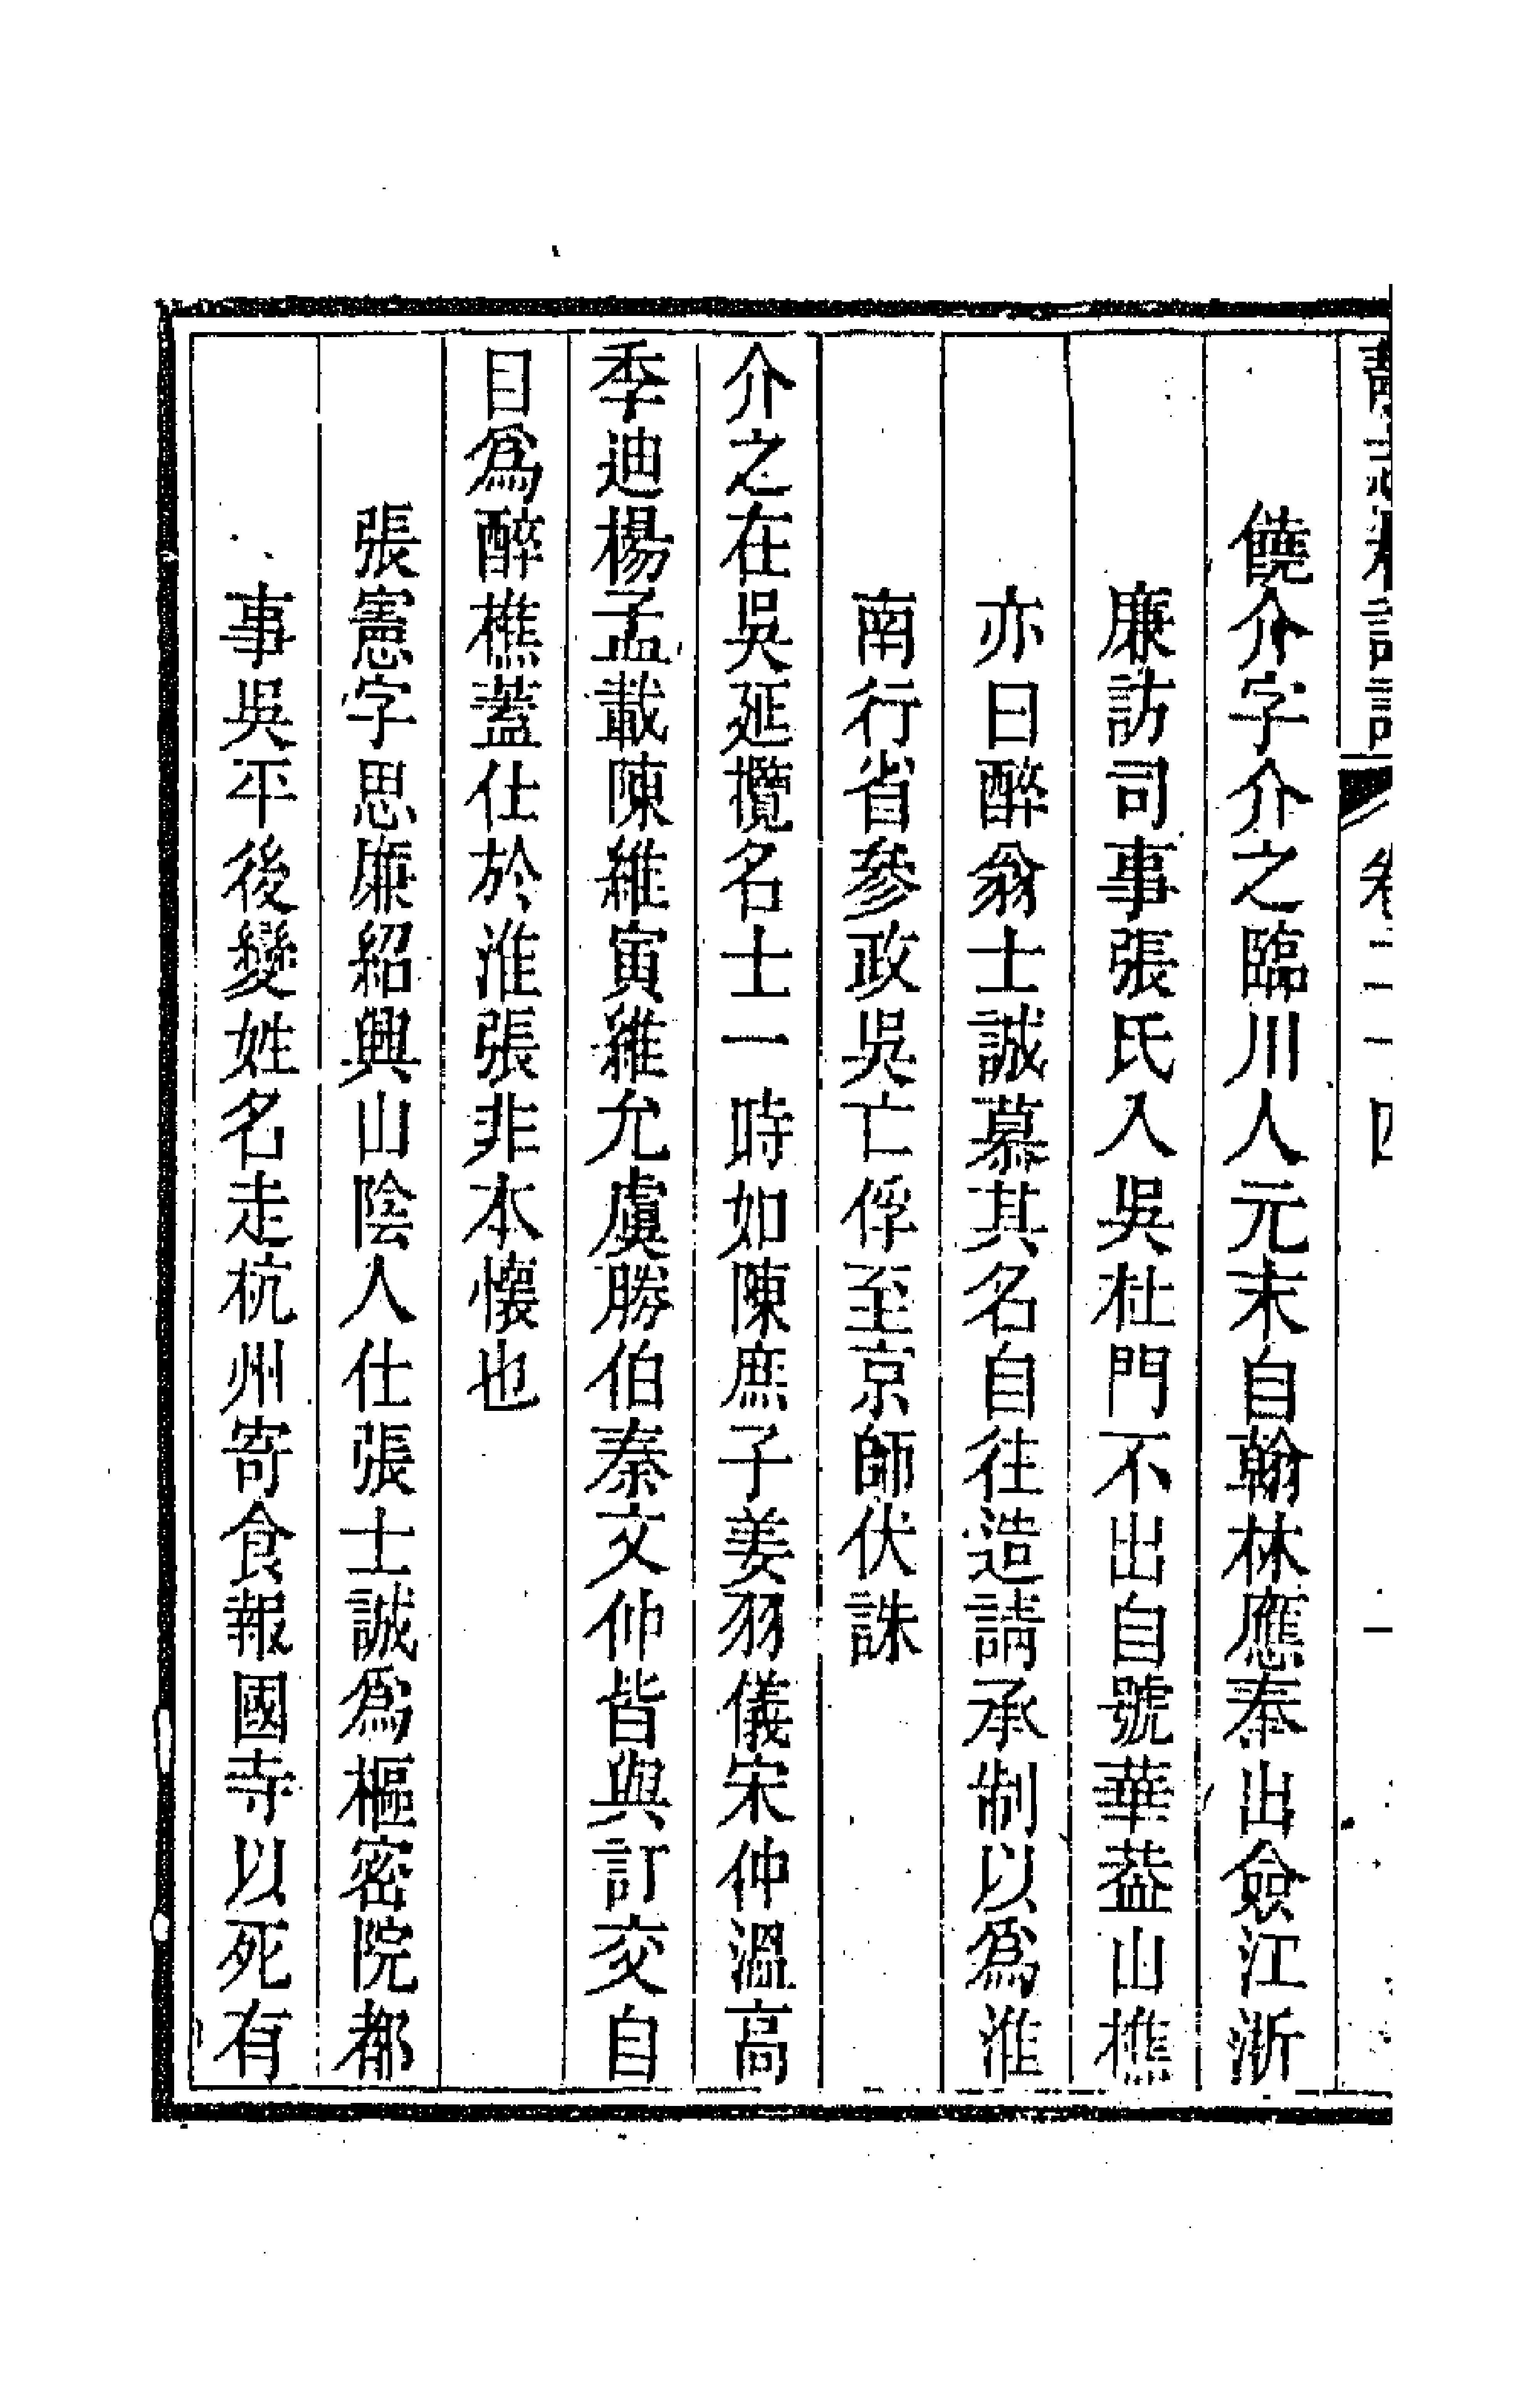 卷二十四
饒介字介之臨川人元末自翰林應奉出僉江浙
廉訪司事張氏入吳杜門不出自號華蓋山樵
亦曰醉翁士誠慕其名自往造請承制以爲淮
南行省參政吳亡俘至京師伏誅
介之在吳延攬名士一時如陳庶子姜羽儀宋仲溫高
季迪楊孟載陳維寅維允虞勝伯秦文仲皆與訂交自
目爲醉樵蓋仕於淮張非本懷也
張憲字思廉紹興山陰人仕張士誠爲樞密院都
事吳平後變姓名走杭州寄食報國寺以死有